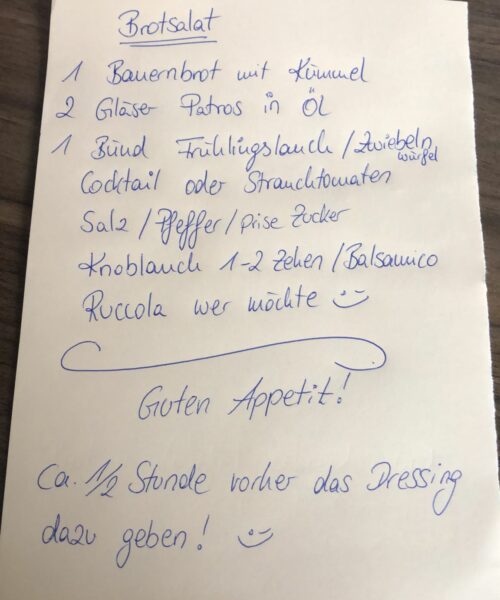 Brotsalat
1 Bauernbrot mit Kümmel
2 Gläser Patros in ÖL
1 Bund Frühlingslauch / Zwiebeln
würfel
Cocktail oder Strauchtomaten
Salz / Pfeffer / Prise Zucker
Knoblauch 1-2 Zehen / Balsamico
Ruccola wer möchte :)
Guten Appetit!
Ca. 1/2 Stunde vorher das Dressing
dazu geben! :)